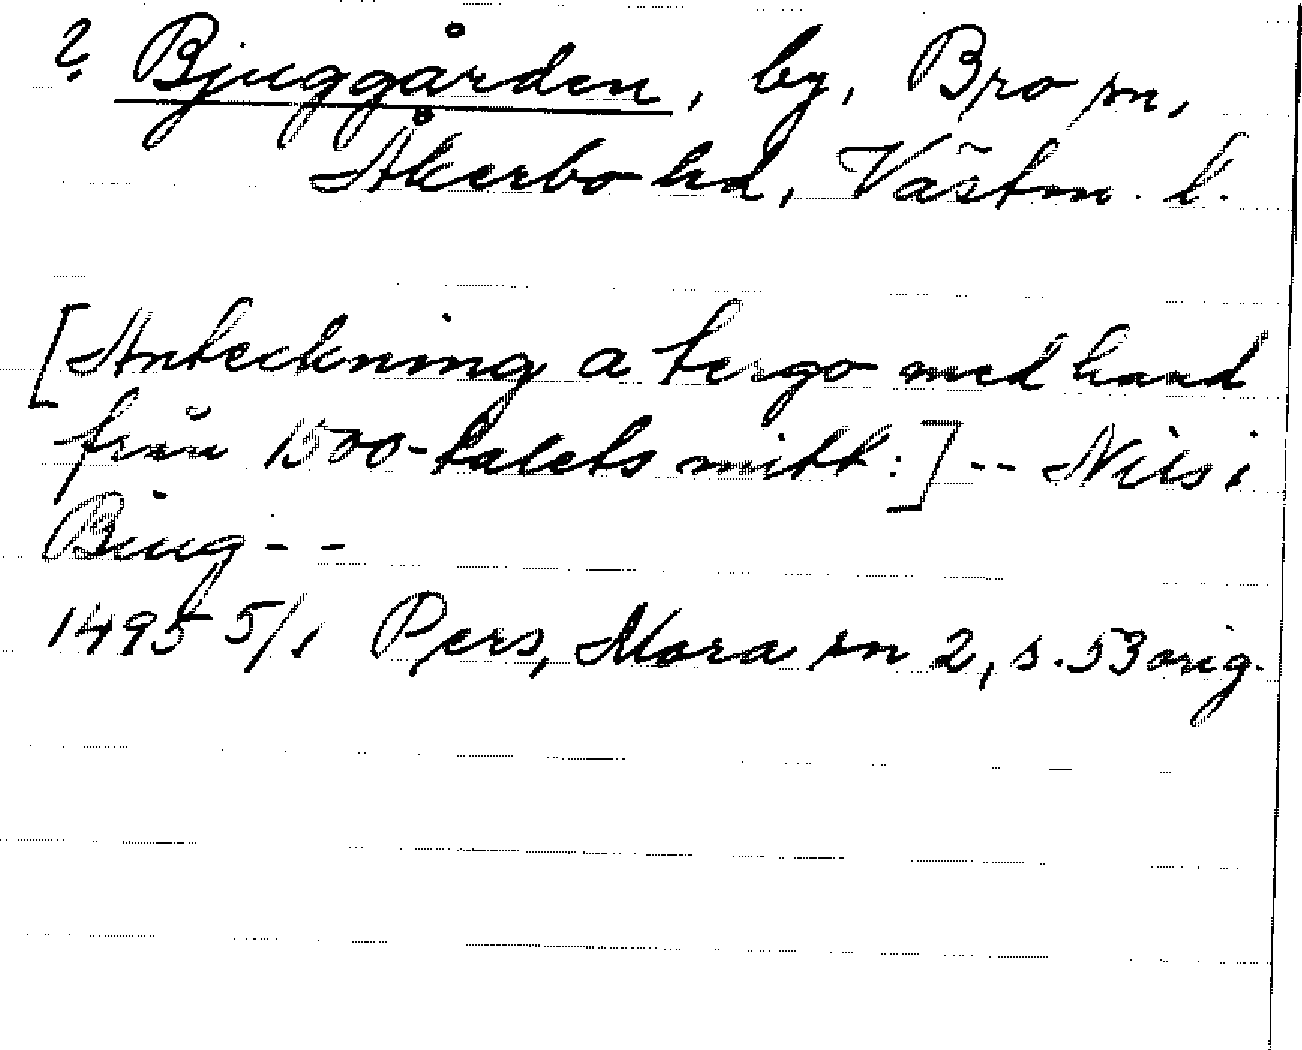 ? Bjuggården, by, Bro sn,
Åkerbo hd, Västm. l.
[Anteckning a tergo med hand
från 1500-talets mitt:] -- Nils i
Biug - -
1495 5/1 Pers, Mora sn 2, s. 53 orig.